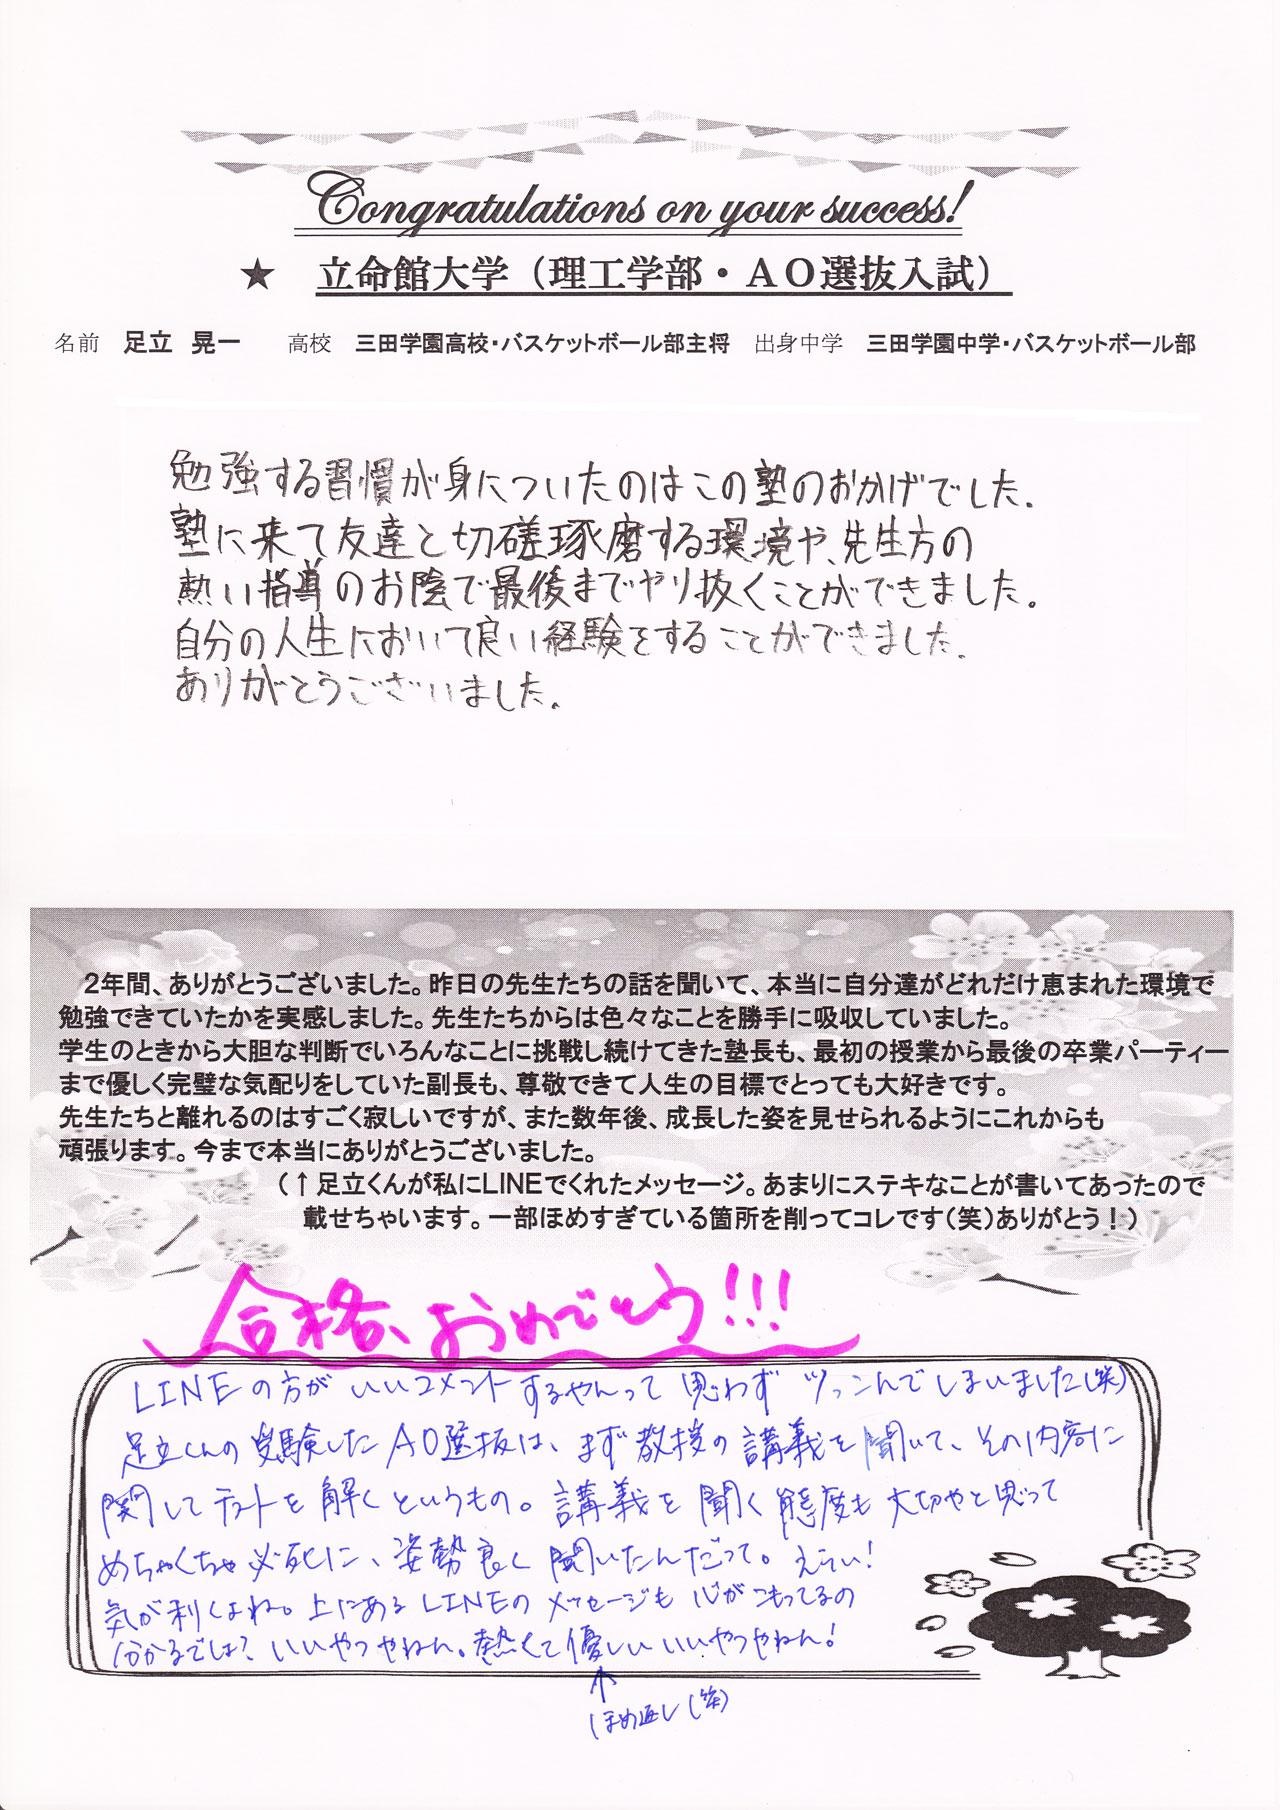 Congratulations on your success!
★ 立命館大学（理工学部・ＡＯ選抜入試）
名前 足立 晃一 高校 三田学園高校・バスケットボール部主将 出身中学 三田学園中学・バスケットボール部
勉強する習慣が身についたのはこの塾のおかげでした.
塾に来て友達と切磋琢磨する環境や、先生方の
熱い指導のお陰で最後までやり抜くことができました。
自分の人生において良い経験をすることができました.
ありがとうございました。
2年間、ありがとうございました。昨日の先生たちの話を聞いて、本当に自分達がどれだけ恵まれた環境で
勉強できていたかを実感しました。先生たちからは色々なことを勝手に吸収していました。
学生のときから大胆な判断でいろんなことに挑戦し続けてきた塾長も、最初の授業から最後の卒業パーティー
まで優しく完璧な気配りをしていた副長も、尊敬できて人生の目標でとっても大好きです。
先生たちと離れるのはすごく寂しいですが、また数年後、成長した姿を見せられるようにこれからも
頑張ります。今まで本当にありがとうございました。
（↑足立くんが私にLINEでくれたメッセージ。あまりにステキなことが書いてあったので
載せちゃいます。一部ほめすぎている箇所を削ってコレです（笑）ありがとう！）
合格、おめでとう!!!
LINEの方がいいコメントするやんって思わずツっこんでしまいました(笑)
足立くんの受験したAO選抜は、まず教授の講義を聞いて、その内容に
関してテストを解くというもの。講義を聞く態度も大切やと思って
めちゃくちゃ必死に、姿勢良く聞いたんだって。えらい!
気が利くよね。上にあるLINEのメッセージも心がこもってるの
分かるでしょ? いいやつやねん。熱くて優しいいいやつやねん!
↑
ほめ返し(笑)